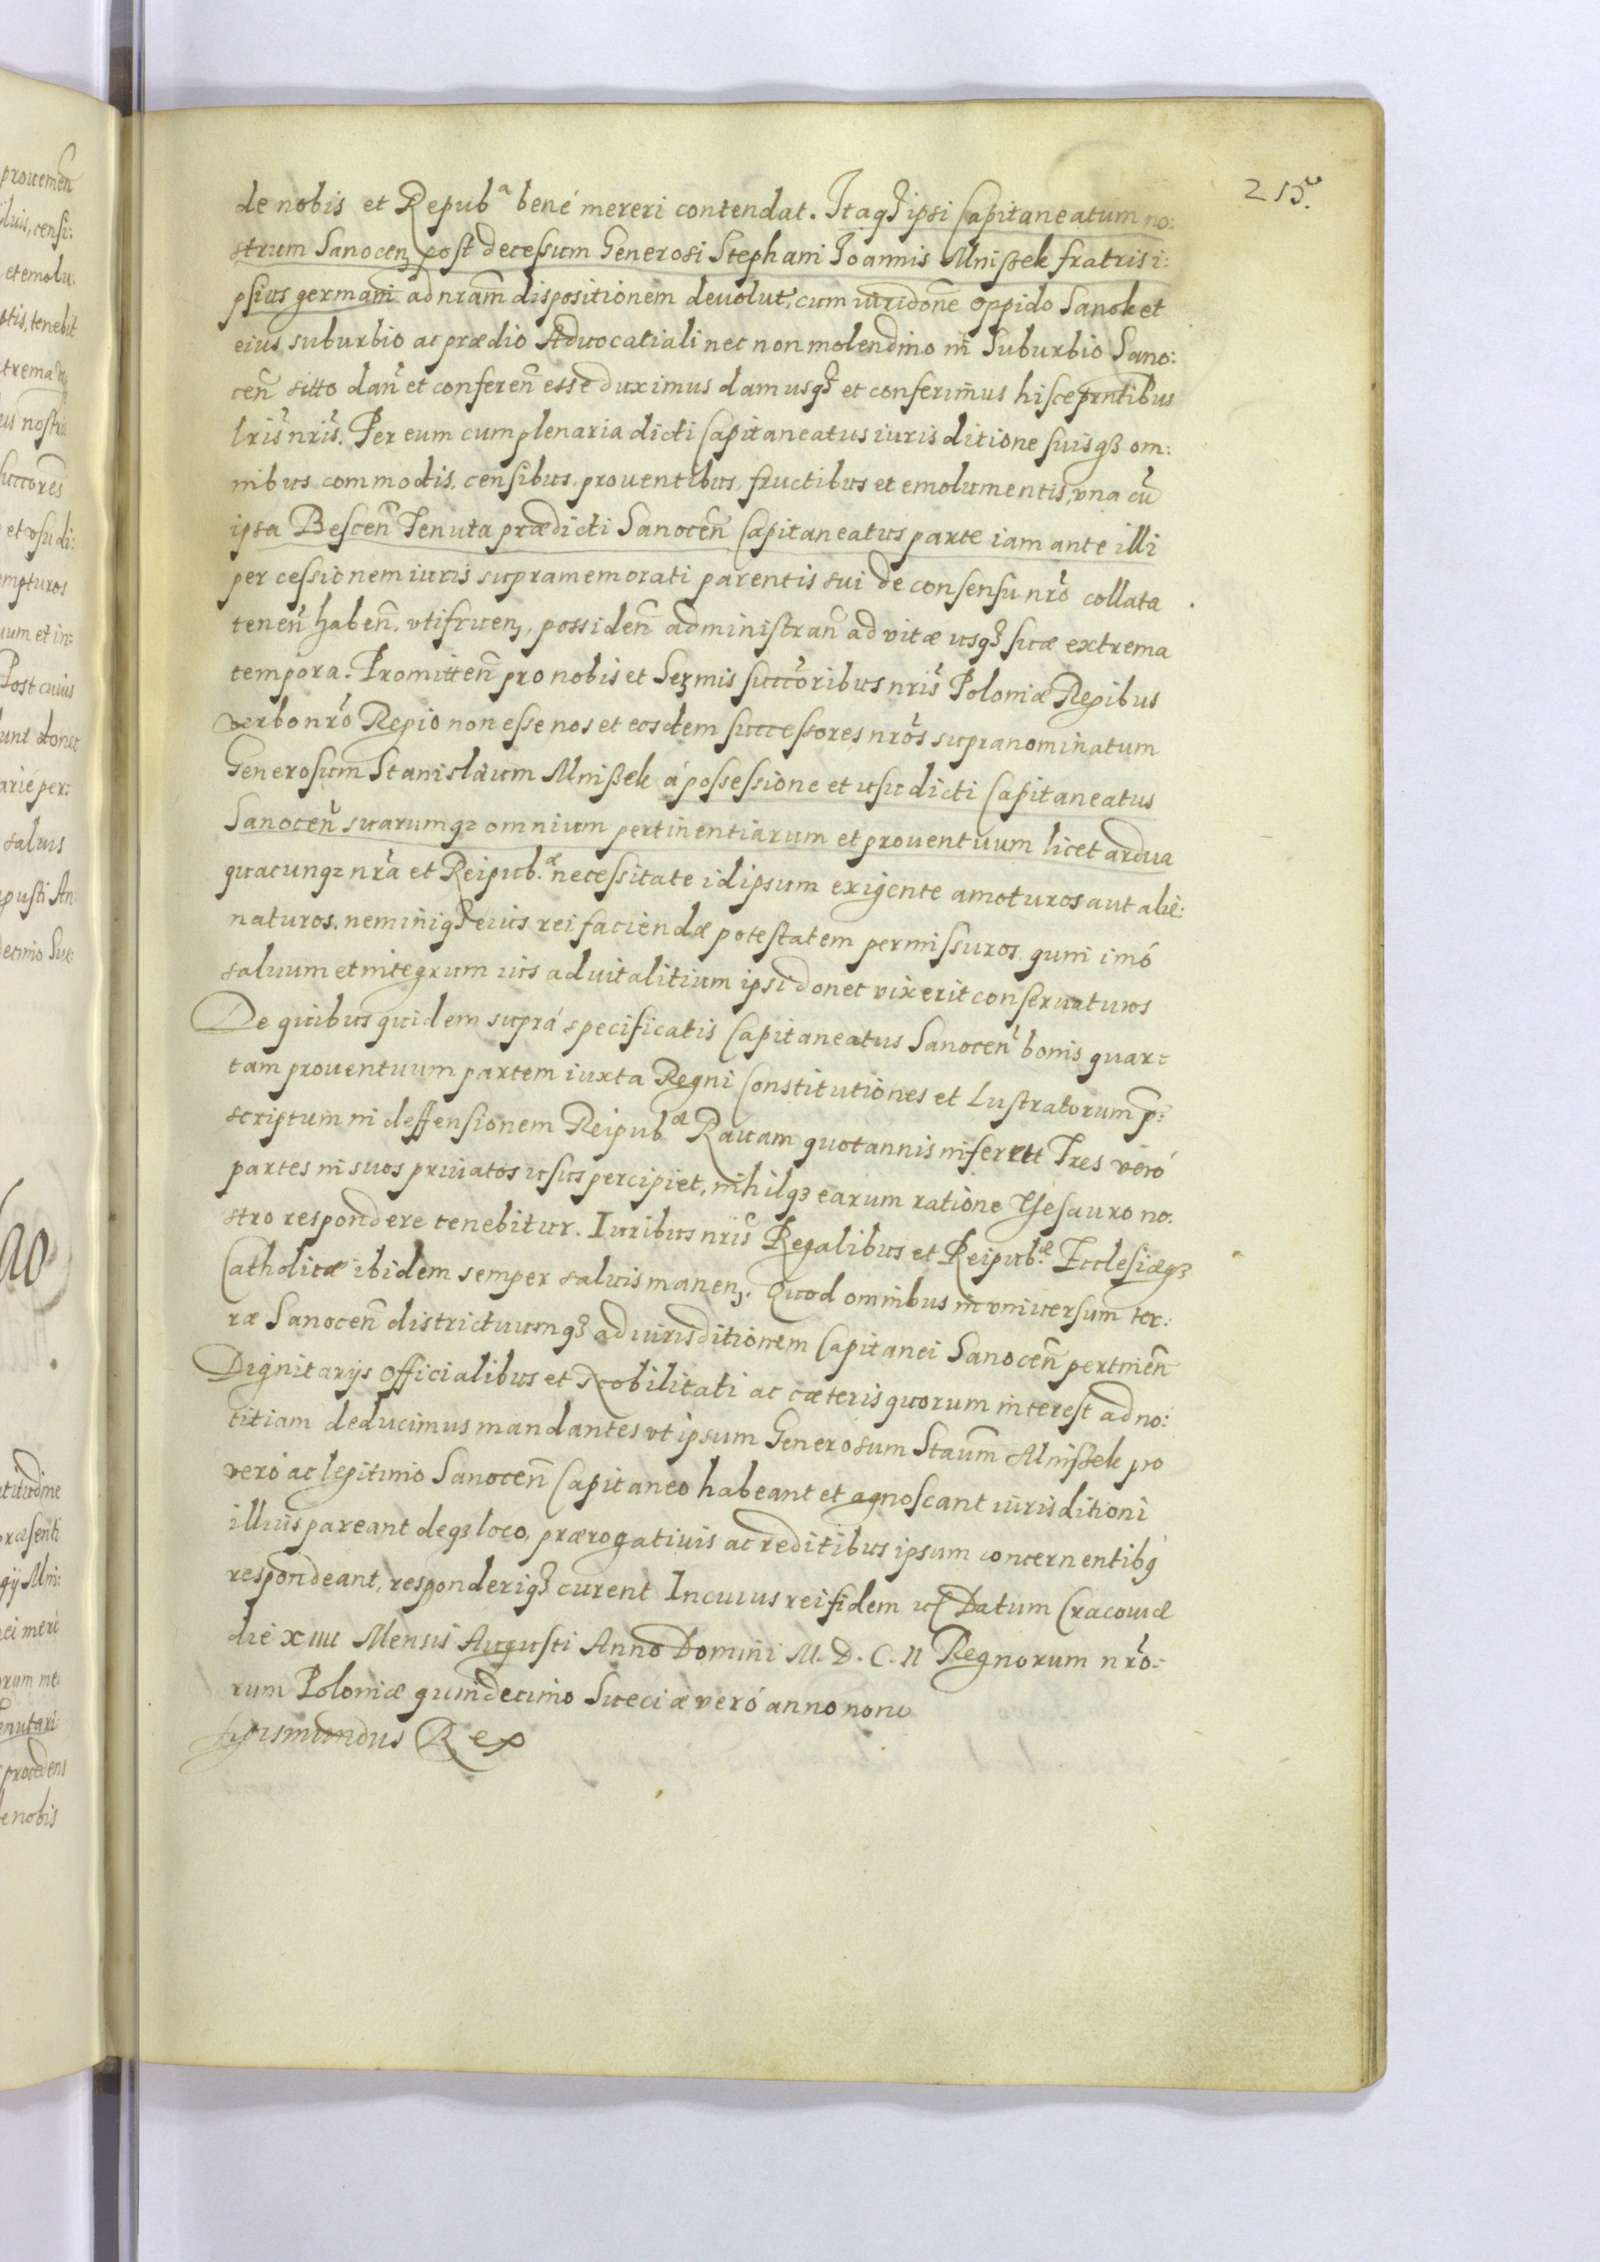 215.
de nobis et Repubᵃ bené mereri contendat. Itaqꝫ ipsi Capitaneatum no:
strum Sanocenꝫ post decessum Generosi Stephani Joannis Mnißek fratris i:
psius germani ad nram̃ dispositionem devolut', cum iuridone oppido Sanok et
eius suburbio ac prædio Advocatiali nec non molendino in Suburbio Sano:
ceñ sitto dañ et confereñ esse duximus damusqꝫ et conferimus hisce prntibus
lris nris. Per eum cum plenaria dicti Capitaneatus iurisditione suisqꝫ om:
nibus commodis, censibus, prouentibus, fructibus et emolumentis, vna cũ
ipsa Besceñ Tenuta prædicti Sanoceñ Capitaneatus parte iam ante illi
per cessionem iuris supramemorati parentis sui de consensu nro collata
teneñ habeñ, vtifruenꝫ, possideñ administrañ ad vitæ usqꝫ suæ extrema
tempora. Promitteñ pro nobis et Serᷤmis succoribus nris Poloniæ Regibus
verbo nro Regio non esse nos et eosdem successores nros supranominatum
Generosum Stanislaum Mnißek á possessione et usu dicti Capitaneatus
Sanoceñ suarumqꝫ omnium pertinentiarum et prouentuum licet ardua
quacunqꝫ nra et Reipub.æ necessitate id ipsum exigente amoturos aut alie:
naturos, neminiqꝫ eius rei faciendæ potestatem permissuros, quin imó
saluum et integrum ius aduitalitium ipsi donec vixerit conseruaturos
De quibus quidem suprá specificatis Capitaneatus Sanoceñ bonis quar:
tam prouentuum partem iuxta Regni Constitutiones et Lustratorum p̃:
scriptum in deffensionem Reipubæ Rauam quotannis inferett Tres veró
partes in suos priuatos usus percipiet, nihilqꝫ earum ratione Thesauro no:
stro respondere tenebitur. Iuribus nris Regalibus et Reipub.æ Ecclesiæqꝫ
Catholicæ ibidem semper saluis manenꝫ. Quod omnibus in vniuersum ter:
ræ Sanoceñ districtuumqꝫ ad iurisditionem Capitanei Sanoceñ pertineñ
Dignitarijs Officialibus et Nobilitati ac cæteris quorum interest ad no:
titiam deducimus mandantes vt ipsum Generosum Staum̃ Mnißek pro
veró ac legitimo Sanoceñ Capitaneo habeant et agnoscant iurisditioni
illius pareant deqꝫ loco, prærogatiuis ac reditibus ipsum concernentibꝯ
respondeant, responderiqꝫ curent In cuius rei fidem etc Datum Cracouiæ
die xiiii Mensis Augusti Anno Domini M. D. C. II Regnorum nro:
rum Poloniæ quindecimo Sueciæ veró anno nono
Sigismundus Rex